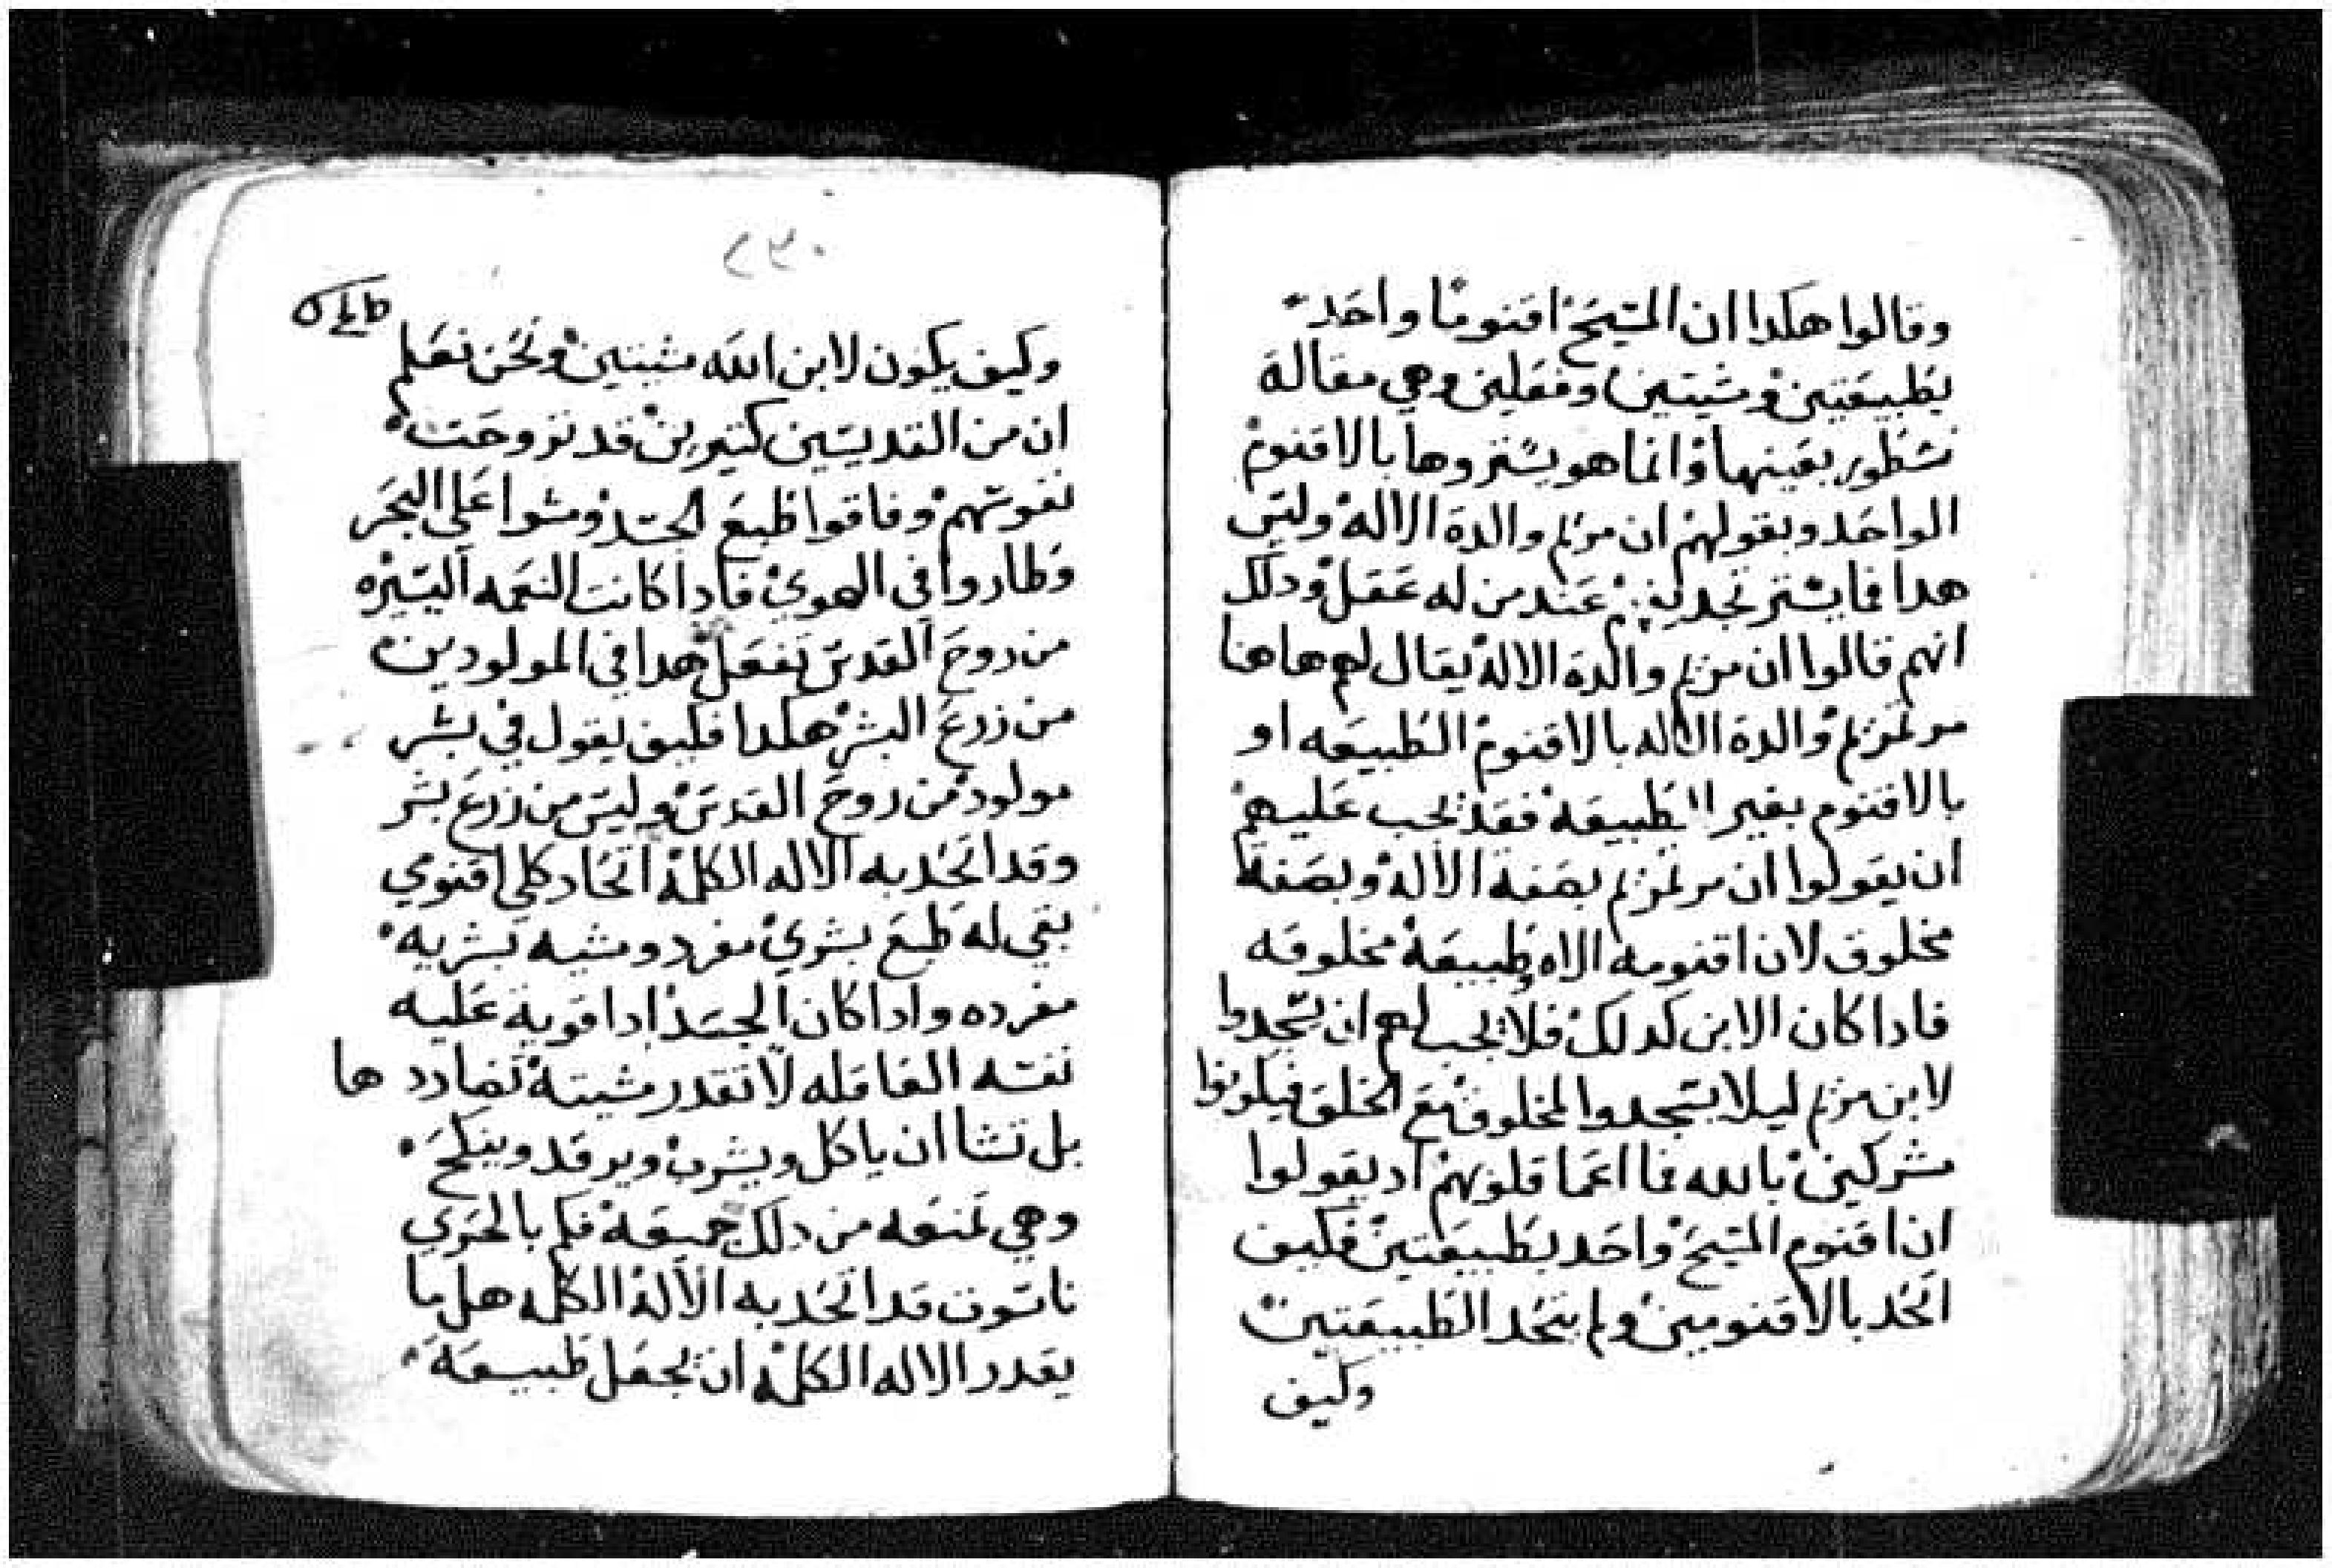 وقالوا هكدا ان المسيح اقنوما واحد
بطبيعتين ومشيتين وفعلين وهي مقالة
نسطور بعينها وانما هو يستروها بالاقنوم
الواحد وبقولهم ان مريم والدة الاله وليس
هدا مما يستر تجديفهم عند من له عقل ودلك
انهم قالوا ان مريم والدة الاله يقال لهم هاهنا
مرتمريم والدة الاله بالاقنوم الطبيعه او
بالاقنوم بغير الطبيعه فقد يجب عليهم
ان يقولوا ان مرتمريم بصفة الاله وبصفة
مخلوق لان اقنومه الاه وطبيعة مخلوقه
فادا كان الابن كدلك فلا يجب لهم ان يسجدوا
لابن مريم ليلا يسجدوا لمخلوق مع الخلق فيكونوا
مشركين بالله فما اعما قلوبهم اد يقولوا
ان اقنوم المسيح واحد بطبيعتين فكيف
اتحد بالاقنومين ولم يتحد الطبيعتين
وكيف
٢٣٠
وكيف يكون لابن الله مشيتين ونحن نعلم
ان من القديسين كتيرين قد تروحت
نفوسهم وفاقوا طبع الجسد ومشوا على البحر
وطاروا في الهوي فادا كانت النعمه اليسيره
من روح القدس تفعل هدا في المولودين
من زرع البشر هكدا فكيف يقول في بشر
مولود من روح القدس وليس من زرع بشر
وقد اتحد به الاله الكلمة اتحاد كلي اقنومي
بقي له طبع بشري مفرد ومشيه بشريه
مفرده وادا كان الجسد ادا قوية عليه
نفسه العاقله لا تقدر مشيته تضادد ها
بل تشا ان ياكل ويشرب ويرقد وينكح
وهي تمنعه من دلك جميعه فكم بالحري
ناسوت قد اتحد به الاله الكلمه هل ما
يقدر الاله الكلمة ان يجعل طبيعة